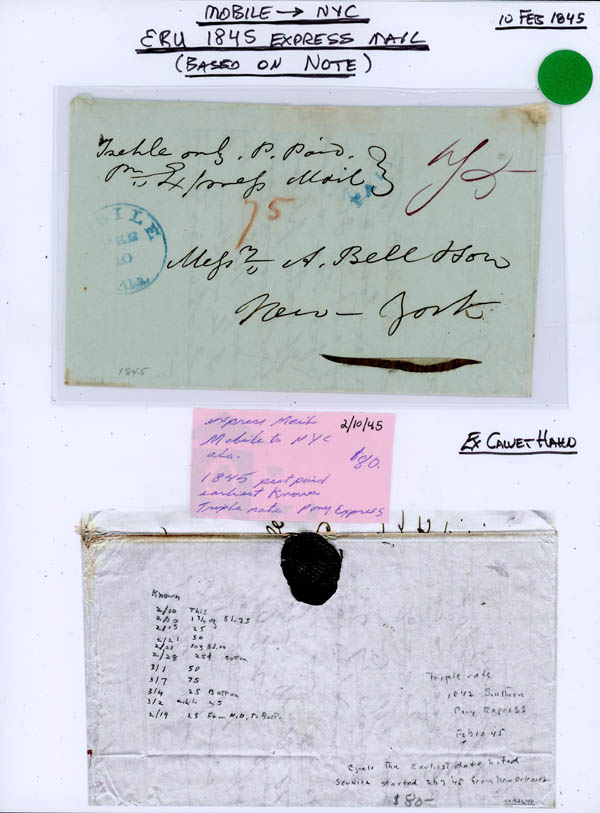 MOBILE → NYC
10 FEB 1845
EKU 1845 EXPRESS MAIL
(BASED ON NOTE)
Treble only. P. Paid.
pr. Express Mail
PAI
75
75
BILE
FEB
10
ALA.
Messrs A. Bell & Son
New-York
1845
express Mail
2/10/45
Mobile to NYC
ala.
$80.
1845 postpaid
earliest Known
Triple rate Pony Express
Ex CALVET HAHN
Known
2/10 This
2/10 1 1/4 oz $1.25
25
2/21 50
2/21 $1.00
2/28 25¢ Boston
3/1 50
3/7 75
3/4 25 Boston
3/2
2/19 25 From N.O.
Triple rate
Southern
Pony Express
Feb 10 45
Equals The Earliest date noted
Service started 2/7 '45 from New Orleans
$80-